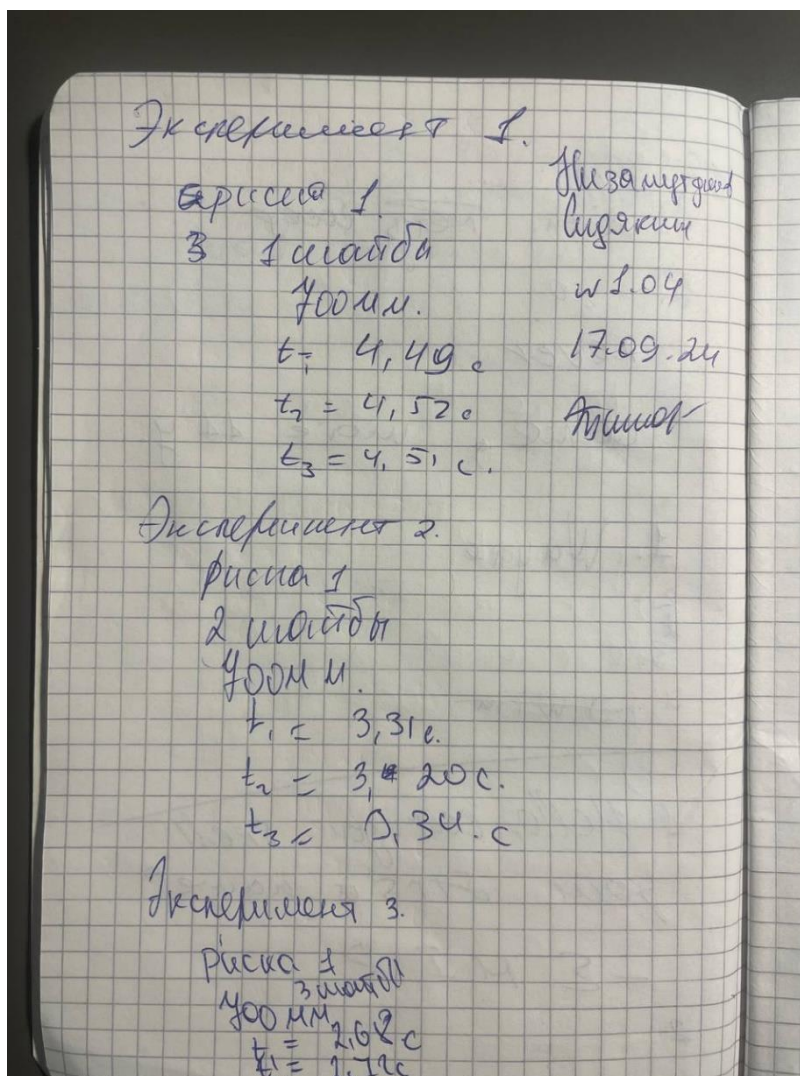 Эксперимент 1.
риска 1.
3 1 шайбы
700мм.
t₁ = 4,49 с
t₂ = 4,52 с
t₃ = 4,51 с.
Низамутдинов
Сидякин
1.04
17.09.24
Эксперимент 2.
риска 1
2 шайбы
700мм.
t₁ = 3,31 с.
t₂ = 3, 20 с.
t₃ = ,34 . с
Эксперимент 3.
риска 1
3 шайбы
700 мм
= 2,68 с
= 2,72с